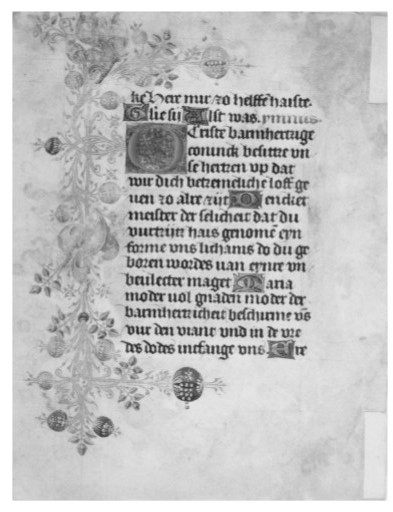 ke Here mir zo helffe haiste.
Glie sy Alst was. ymnus
O Criste barmhertzige
coninck besittze vn
se hertzen vp dat
wir dich betzemeliche loff ge
uen zo alre zijt Gencket
meister der selicheit dat du
haus genomē eyn
forme vns lichams do du ge
boren wordes uan eynre vn
beulecter maget Maria
moder uol gnaden moder der
barmhertzicheit beschirme vs
vur den viant vnd in de vre
des dodes intfange vns Ere